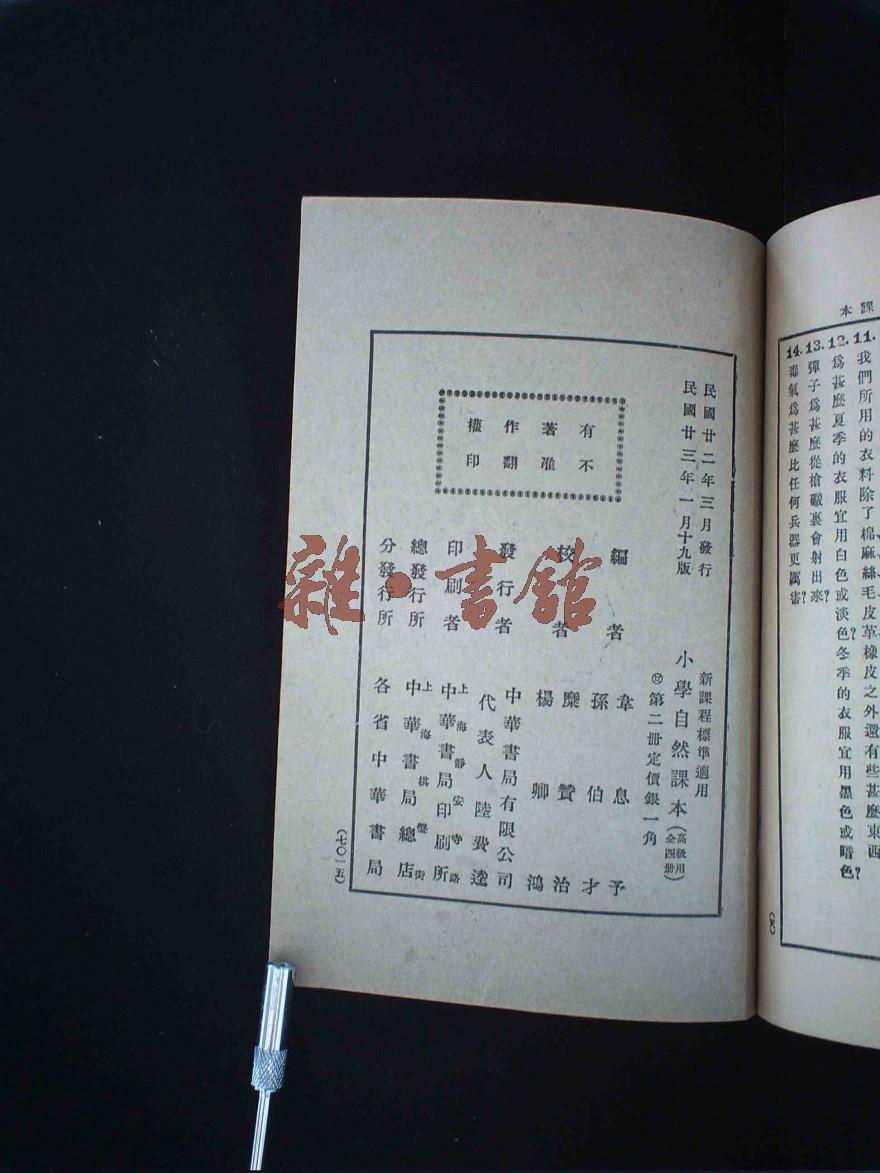 課本
11.我們所用的衣料除了棉、麻、絲、毛、皮革、橡皮之外還有些甚麼東西
12.爲甚麼夏季的衣服宜用白色或淡色?冬季的衣服宜用黑色或暗色?
13.彈子爲甚麼從槍礮裏會射出來?
14.毒氣爲甚麼比任何兵器更厲害?
民國廿二年三月發行
民國廿三年一月十九版
有著作權
不准翻印
新課程標準適用
小學自然課本(高級用全四册)
第二册定價銀一角
編者 韋息予
孫伯才
校者 糜贊治
楊卿鴻
發行者 中華書局有限公司
代表人陸費逵
印刷者 上海靜安寺路
中華書局印刷所
總發行所 上海棋盤街
中華書局總店
分發行所 各省中華書局
(七〇一五)
雜·書館